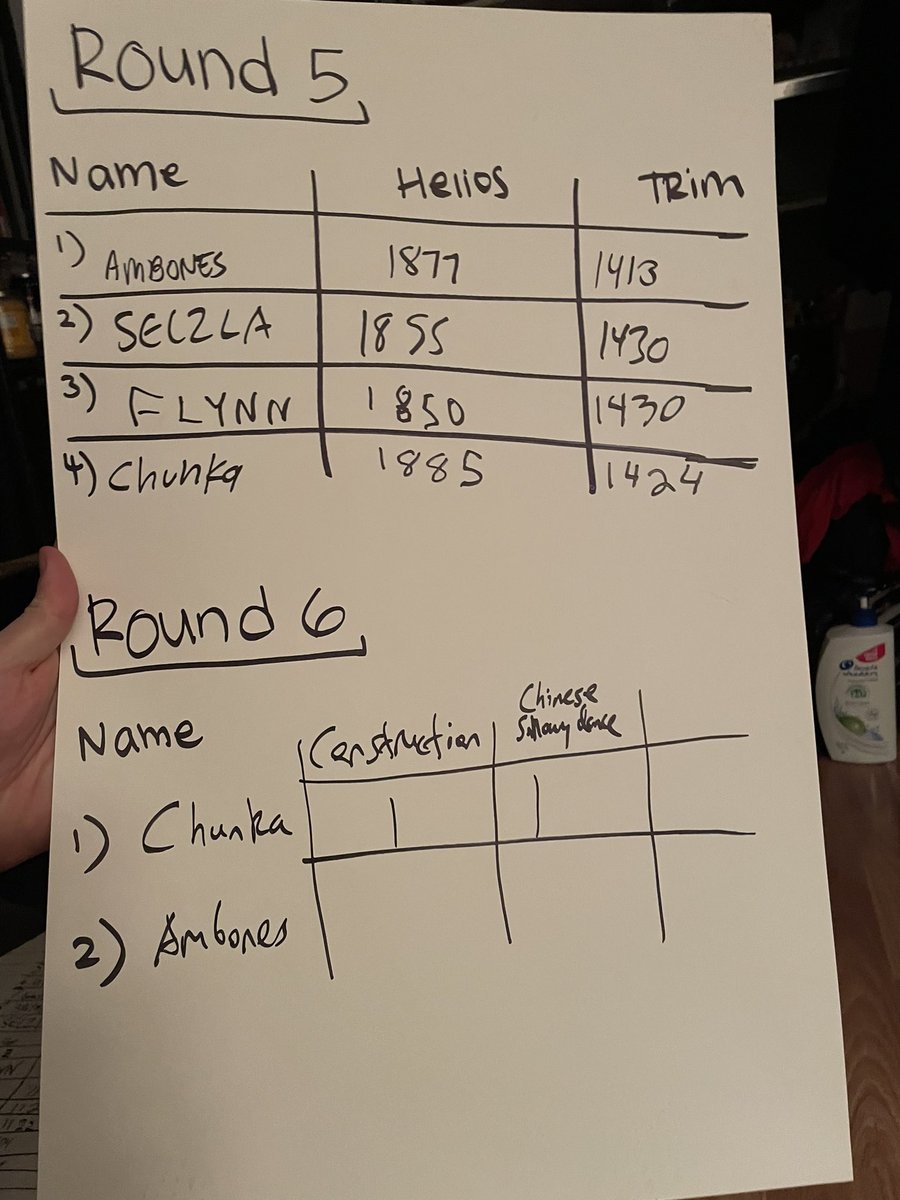 Round 5
Name Helios TRim
1) AMBONES 1877 1413
2) SELZLA 1855 1430
3) FLYNN 1850 1430
4) Chunka 1885 1424
Round 6
Name Construction Chinese
dance
1) Chunka | |
2) Ambones